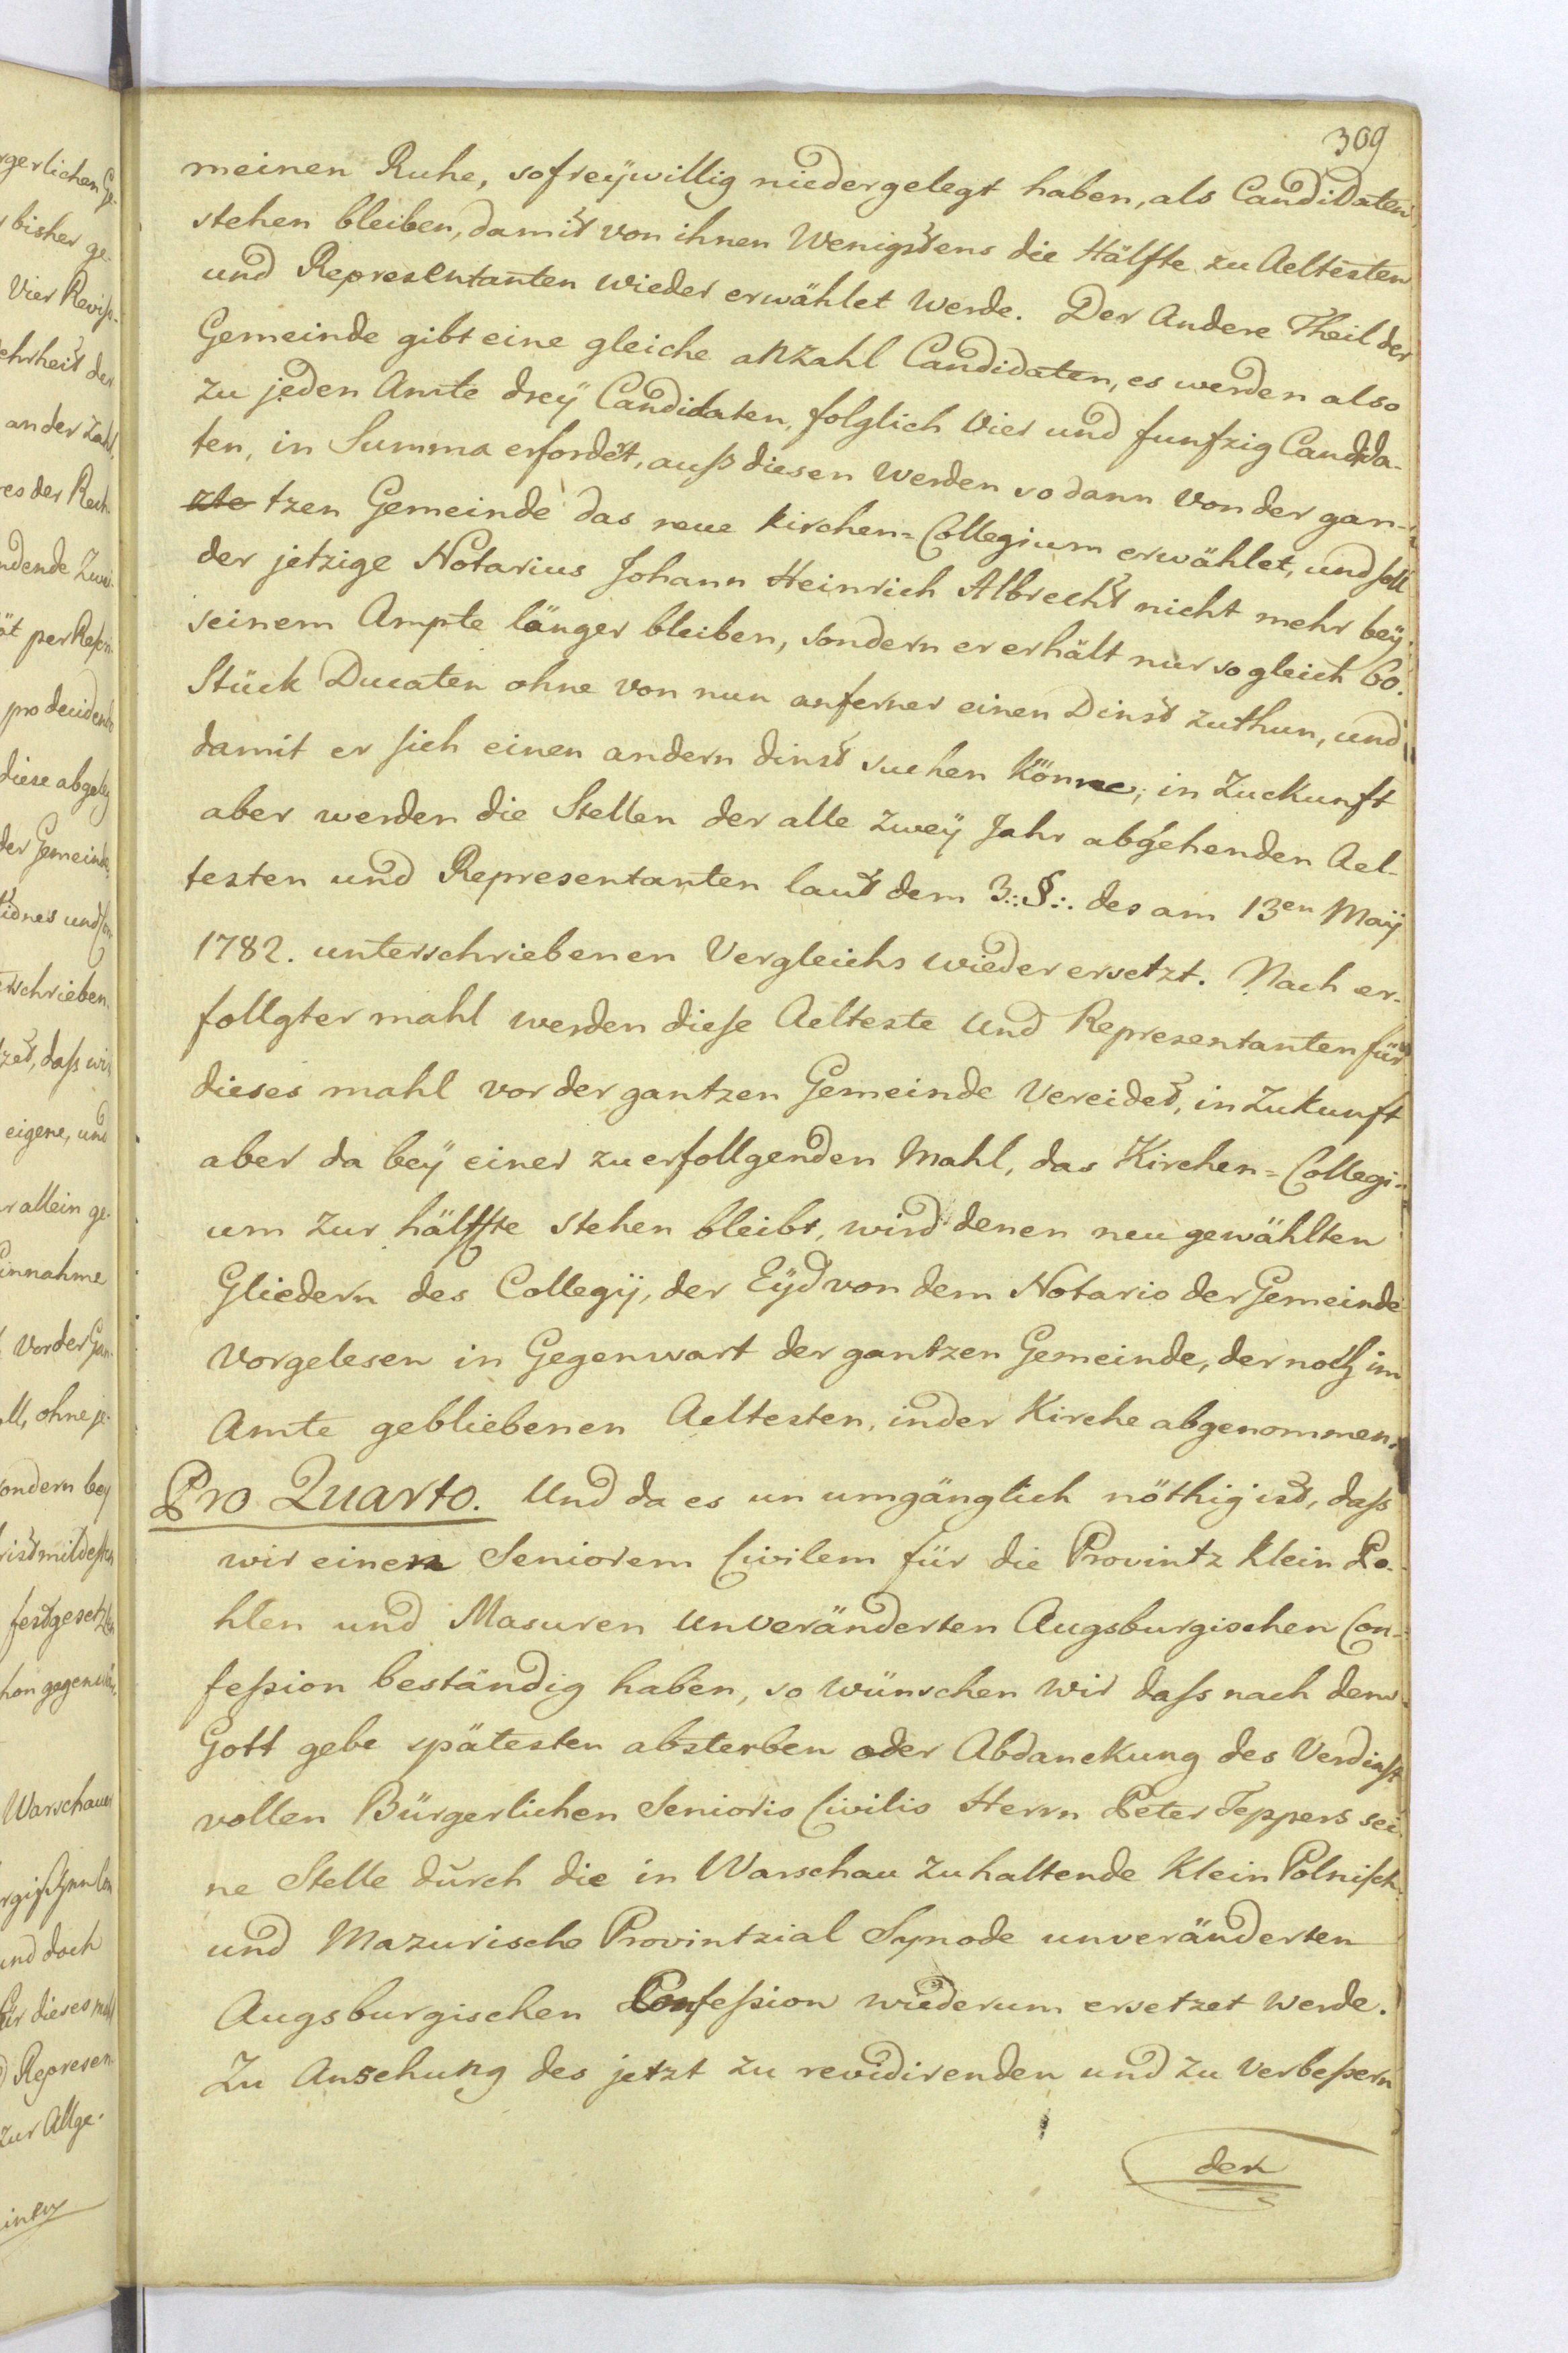 309
meinen Ruhe, so freÿwillig niedergelegt haben, als Candidaten
stehen bleiben, damit von ihnen Wenigstens die Hälfte zu Aeltesten
und Representanten wieder erwählet werde. Der Andere Theil der
Gemeinde gibt eine gleiche anzahl Candidaten, es werden also
zu jeden Amte dreÿ Candidaten, folglich Vier und funfzig Candida-
ten, in Summa erfordert, auß diesen werden sodann von der gan-
tzen Gemeinde das neue Kirchen=Collegium erwählet, und soll
der jetzige Notarius Johann Heinrich Albrecht nicht mehr beÿ
seinem Ampte länger bleiben, sondern er erhält nur sogleich 60.
Stück Ducaten ohne von nun anferner einen Dinst zuthun, und
damit er sich einen andern dinst suchen Könne, in Zuckunft
aber werden die Stellen der alle zweÿ Jahr abgehenden Ael-
testen und Representanten laut dem 3.:§:. des am 13en Maÿ
1782. unterschriebenen Vergleichs wieder ersetzt. Nach er-
follgter mahl werden diese Aelteste und Representanten für
dieses mahl vor der gantzen Gemeinde Vereidet, in Zukunft
aber da beÿ einer zuerfollgenden Mahl, das Kirchen=Collegi-
um zur hälffte stehen bleibt, wird denen neu gewählten
Gliedern des Collegÿ, der Eÿd von dem Notario der Gemeinde
vorgelesen in Gegenwart der gantzen Gemeinde, der noch im
Amte gebliebenen Aeltesten, in der Kirche abgenommen.
Pro Quarto. Und da es un umgänglich nöthig ist, dass
wir einen Seniorem Civilem für die Provintz Klein Po-
hlen und Masuren unveränderten Augsburgischen Con-
feßion beständig haben, so wünschen wir dass nach dem
Gott gebe spätesten absterben oder Abdanckung des Verdinst
vollen Bürgerlichen Senioris Civilis Herrn Peter Teppers sei
ne Stelle durch die in Warschau zu haltende Klein Polnisch
und Mazurische Provintzial Synode unveränderten
Augsburgischen Confeßion wiederum ersetzet werde.
Zu Ansehung des jetzt zu revidirenden und zu verbeßern
den